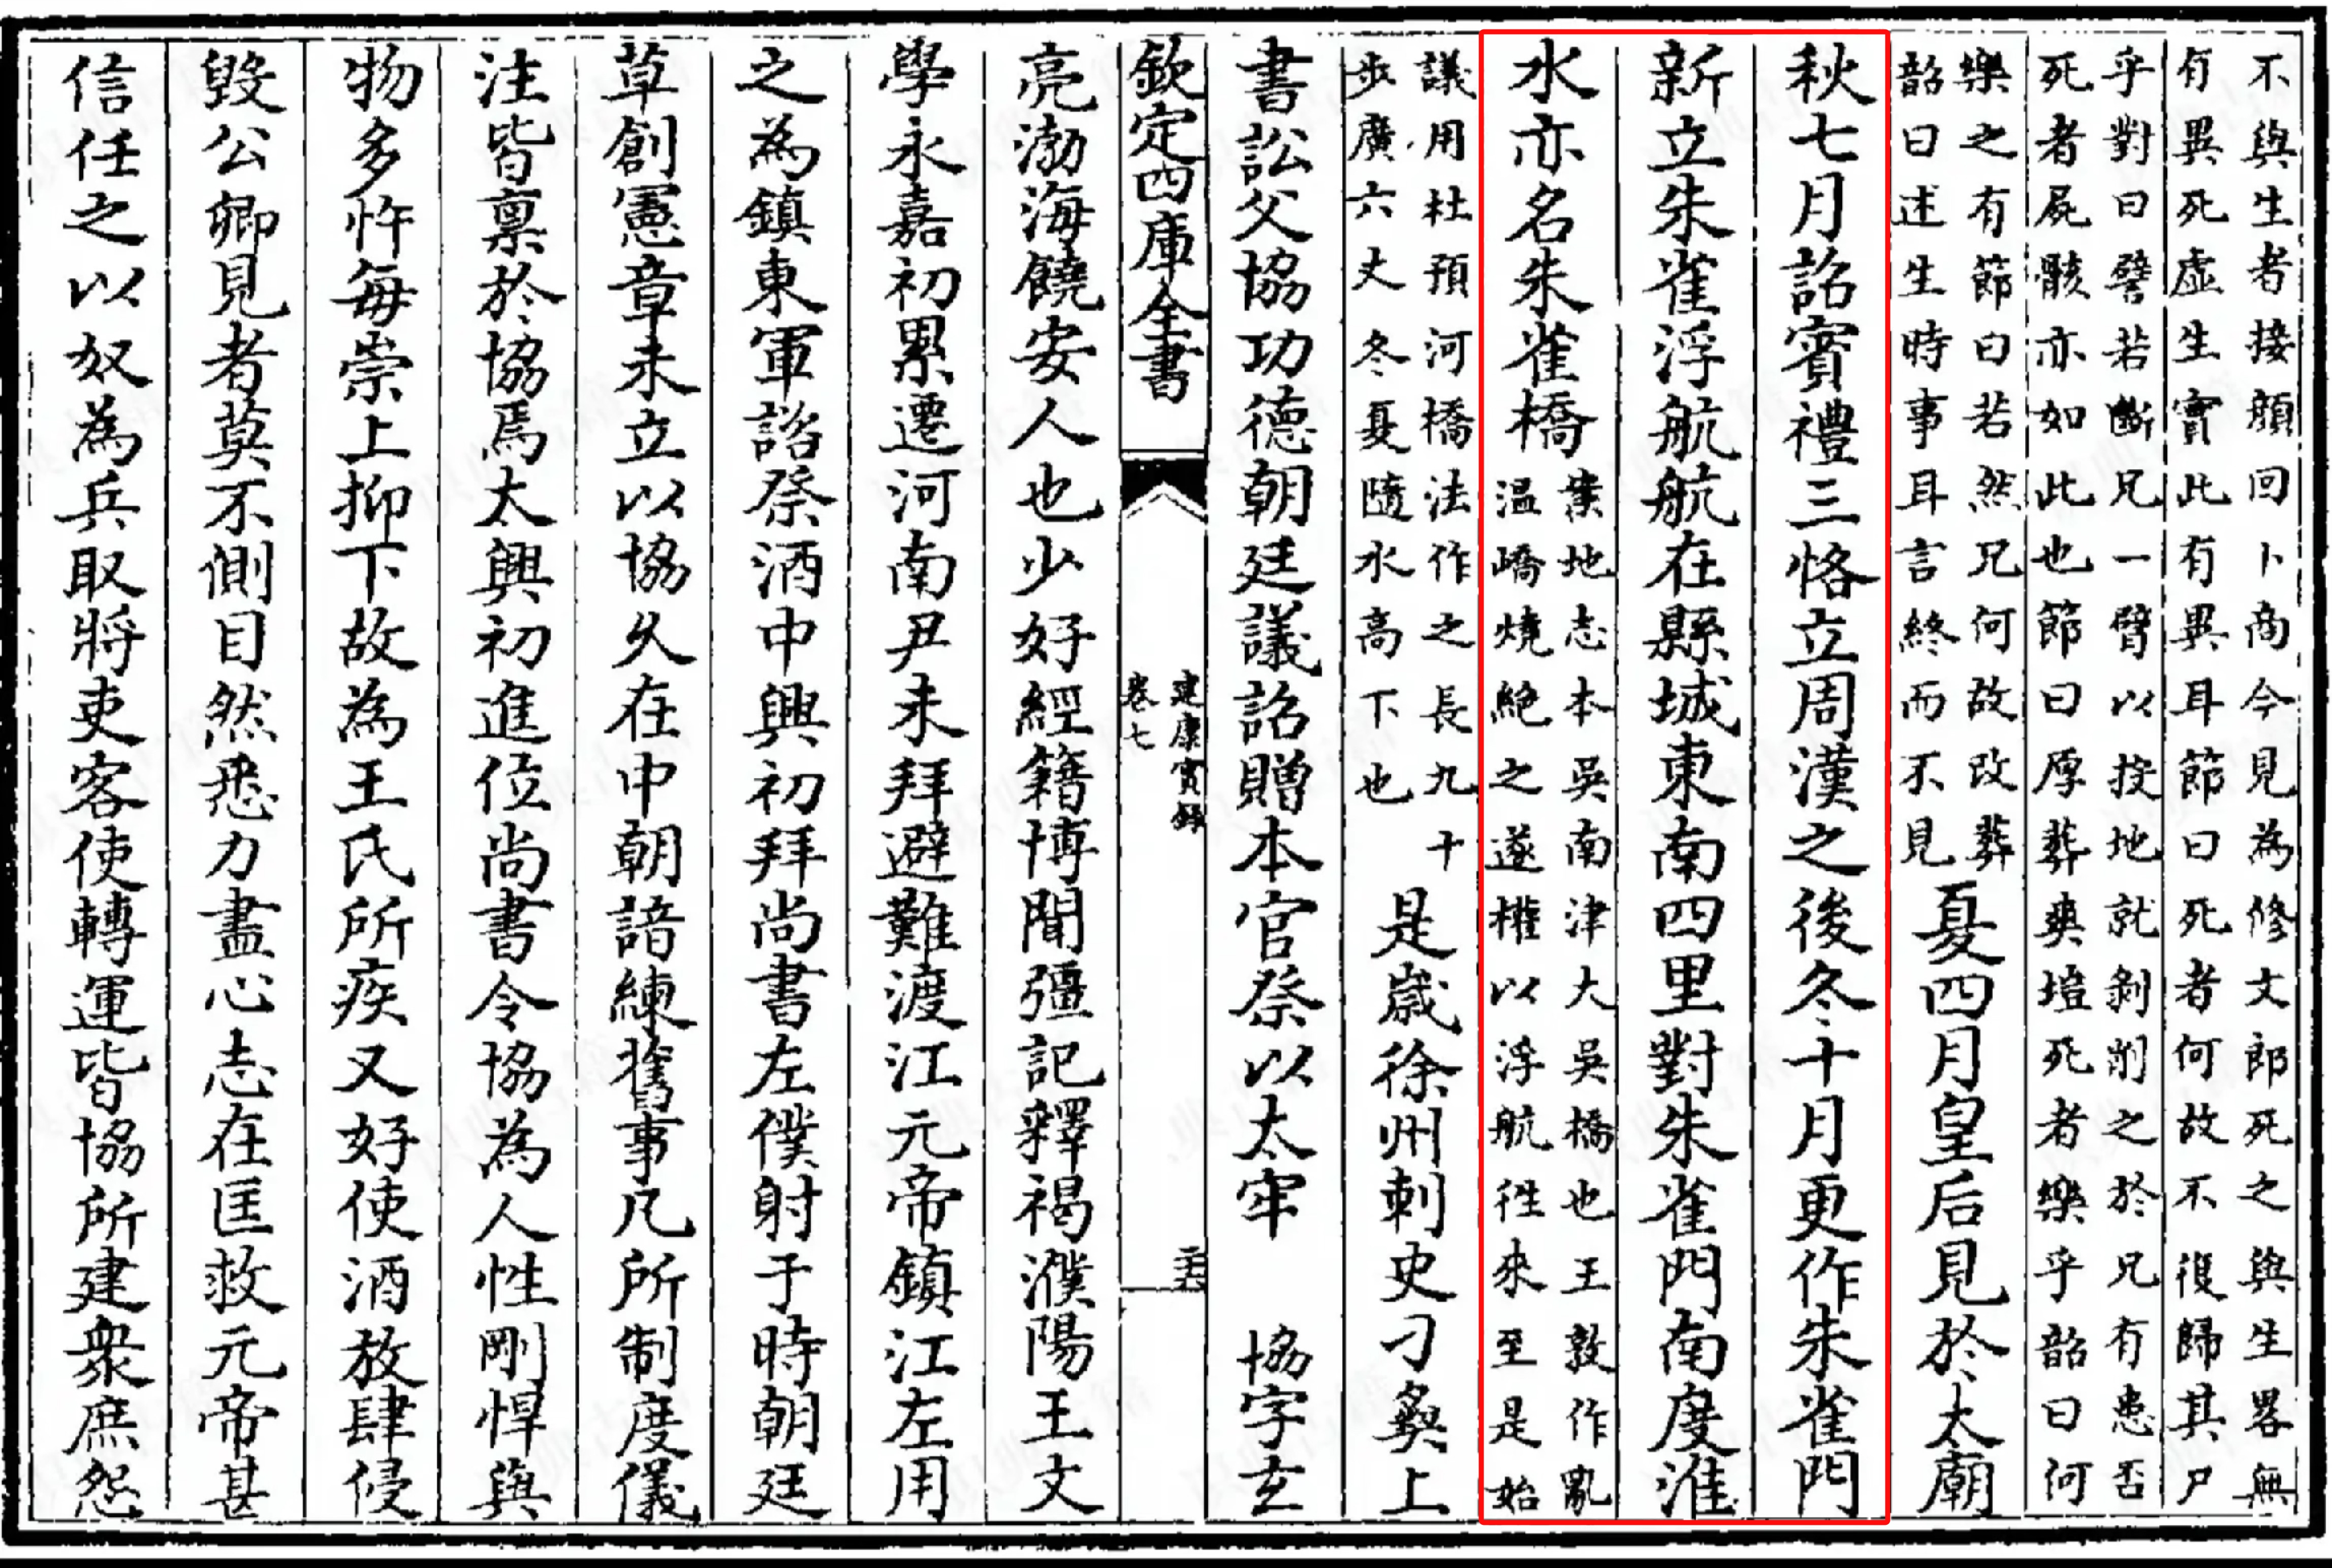 不與生者接顔回卜商今見為修文郎死之與生畧無
有異死虛生實此有異耳節曰死者何故不復歸其尸
乎對曰譬若斷兄一臂以投地就剝削之於兄有患否
死者屍骸亦如此也節曰厚葬爽塏死者樂乎韶曰何
樂之有節曰若然兄何故改葬
韶曰述生時事耳言終而不見
夏四月皇后見於太廟
秋七月詔賓禮三恪立周漢之後冬十月更作朱雀門
新立朱雀浮航航在縣城東南四里對朱雀門南度淮
水亦名朱雀橋
案地志本吳南津大吳橋也王敦作亂
温嶠燒絶之遂權以浮航徃來至是始
議用杜預河橋法作之長九十
步廣六丈冬夏隨水高下也
是歲徐州刺史刁彝上
書訟父協功德朝廷議詔贈本官祭以太牢 協字玄
欽定四庫全書
建康實録
卷七
亮渤海饒安人也少好經籍博聞彊記釋褐濮陽王文
學永嘉初累遷河南尹未拜避難渡江元帝鎮江左用
之為鎮東軍諮祭酒中興初拜尚書左僕射于時朝廷
草創憲章未立以協久在中朝諳練舊事凡所制度儀
注皆禀於協焉太興初進位尚書令協為人性剛悍與
物多忤每崇上抑下故為王氏所疾又好使酒放肆侵
毀公卿見者莫不側目然悉力盡心志在匡救元帝甚
信任之以奴為兵取將吏客使轉運皆協所建衆庶怨